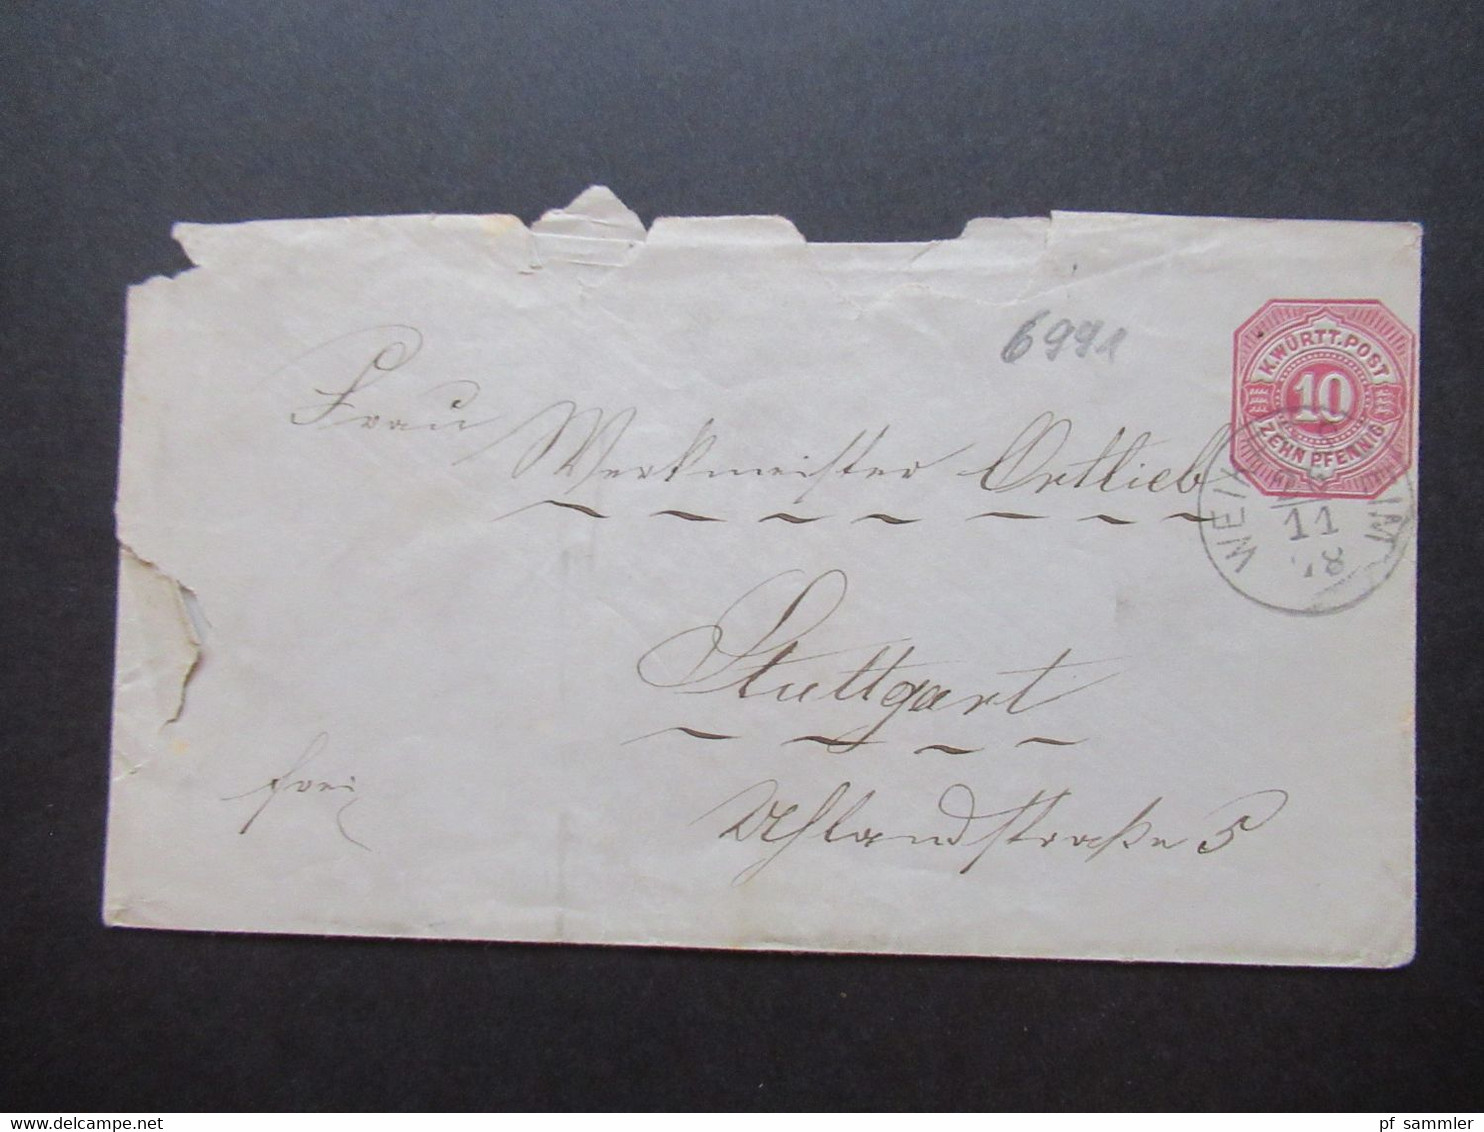 6991
K. WÜRTT. POST
10
ZEHN PFENNIG
WEIK IM
11
Frau
Werkmeister Ortlieb
Stuttgart
frei
Uhlandstraße 5
www.delcampe.net
pf_sammler